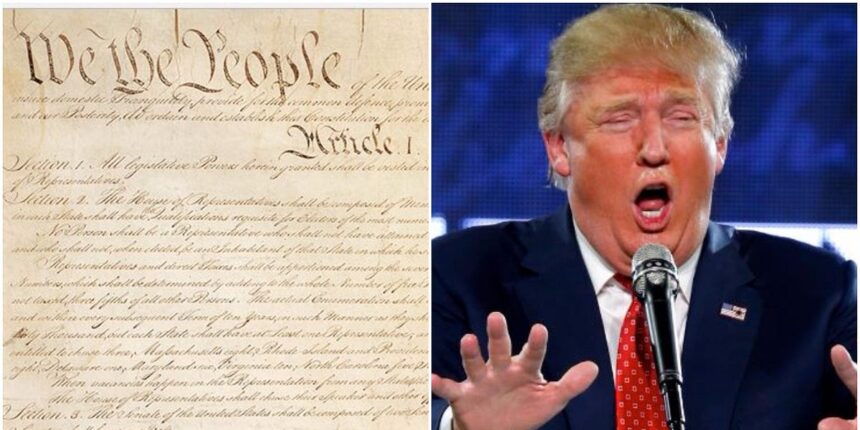 We the People
of the Un
insure domestic Tranquility, provide for the common defence, prom
and our Posterity, do ordain and establish this Constitution for the
Article. I.
Section. 1. All legislative Powers herein granted shall be vested in
of Representatives.
Section. 2. The House of Representatives shall be composed of Mem
in each State shall have the Qualifications requisite for Electors of the most numer
No Person shall be a Representative who shall not have attained
and who shall not, when elected, be an Inhabitant of that State in which he
Representatives and direct Taxes shall be apportioned among the seve
Numbers, which shall be determined by adding to the whole Number of free
not taxed, three fifths of all other Persons. The actual Enumeration shall
and within every subsequent Term of ten Years, in such Manner as they sha
thirty Thousand, but each State shall have at Least one Representative; an
entitled to chuse three, Massachusetts eight, Rhode Island and Providence
eight, Delaware one, Maryland six, Virginia ten, North Carolina five,
When vacancies happen in the Representation from any State, th
The House of Representatives shall chuse their Speaker and other
Section. 3. The Senate of the United States shall be composed of two Sen